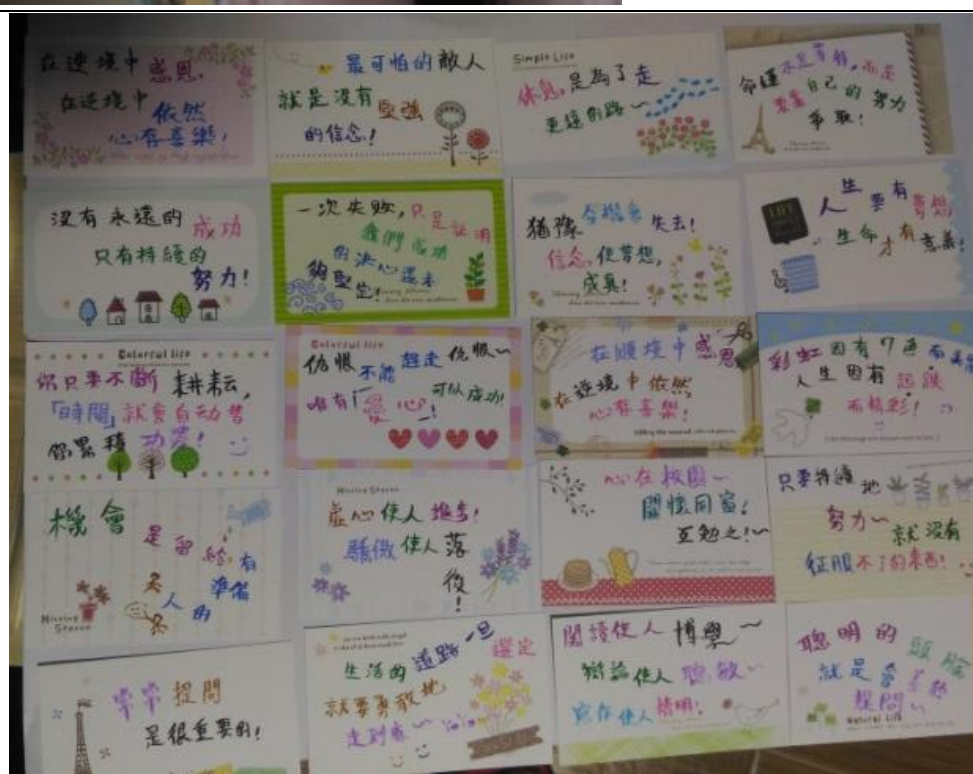 在逆境中感恩,
在逆境中
依然
心存喜樂!
最可怕的敵人
就是沒有堅強
的信念!
Simple Life
休息,是為了走
更遠的路~
命運不是等待,而是
要靠自己的努力
爭取!
沒有永遠的成功
只有持續的
努力!
一次失敗,只是證明
我們成功
的決心還未
夠堅定!
猶豫令機會失去!
信念,使夢想,
成真!
人生要有夢想
生命才有意義!
Colorful life
你只要不斷耕耘,
「時間」就會自动替
你累積功勞!
Colorful life
仇恨不能趕走仇恨~
唯有「愛心」可以成功!
在順境中感恩
在逆境中依然
心存喜樂!
彩虹因有7色而美麗
人生因有起跌
而精彩!
機會
是留給有
準備
人的
Missing Season
Missing Season
虛心使人進步!
驕傲使人落
後!
心在校園~
關懷同窗!
互勉之!~
只要持續地
努力~
就沒有
征服不了的東西!
常常提問
是很重要的!
生活的道路一旦選定
就要勇敢地
走到底~
閱讀使人博學~
辯論使人聰敏~
寫作使人精明!
聰明的頭腦
就是會
提問
Natural Life